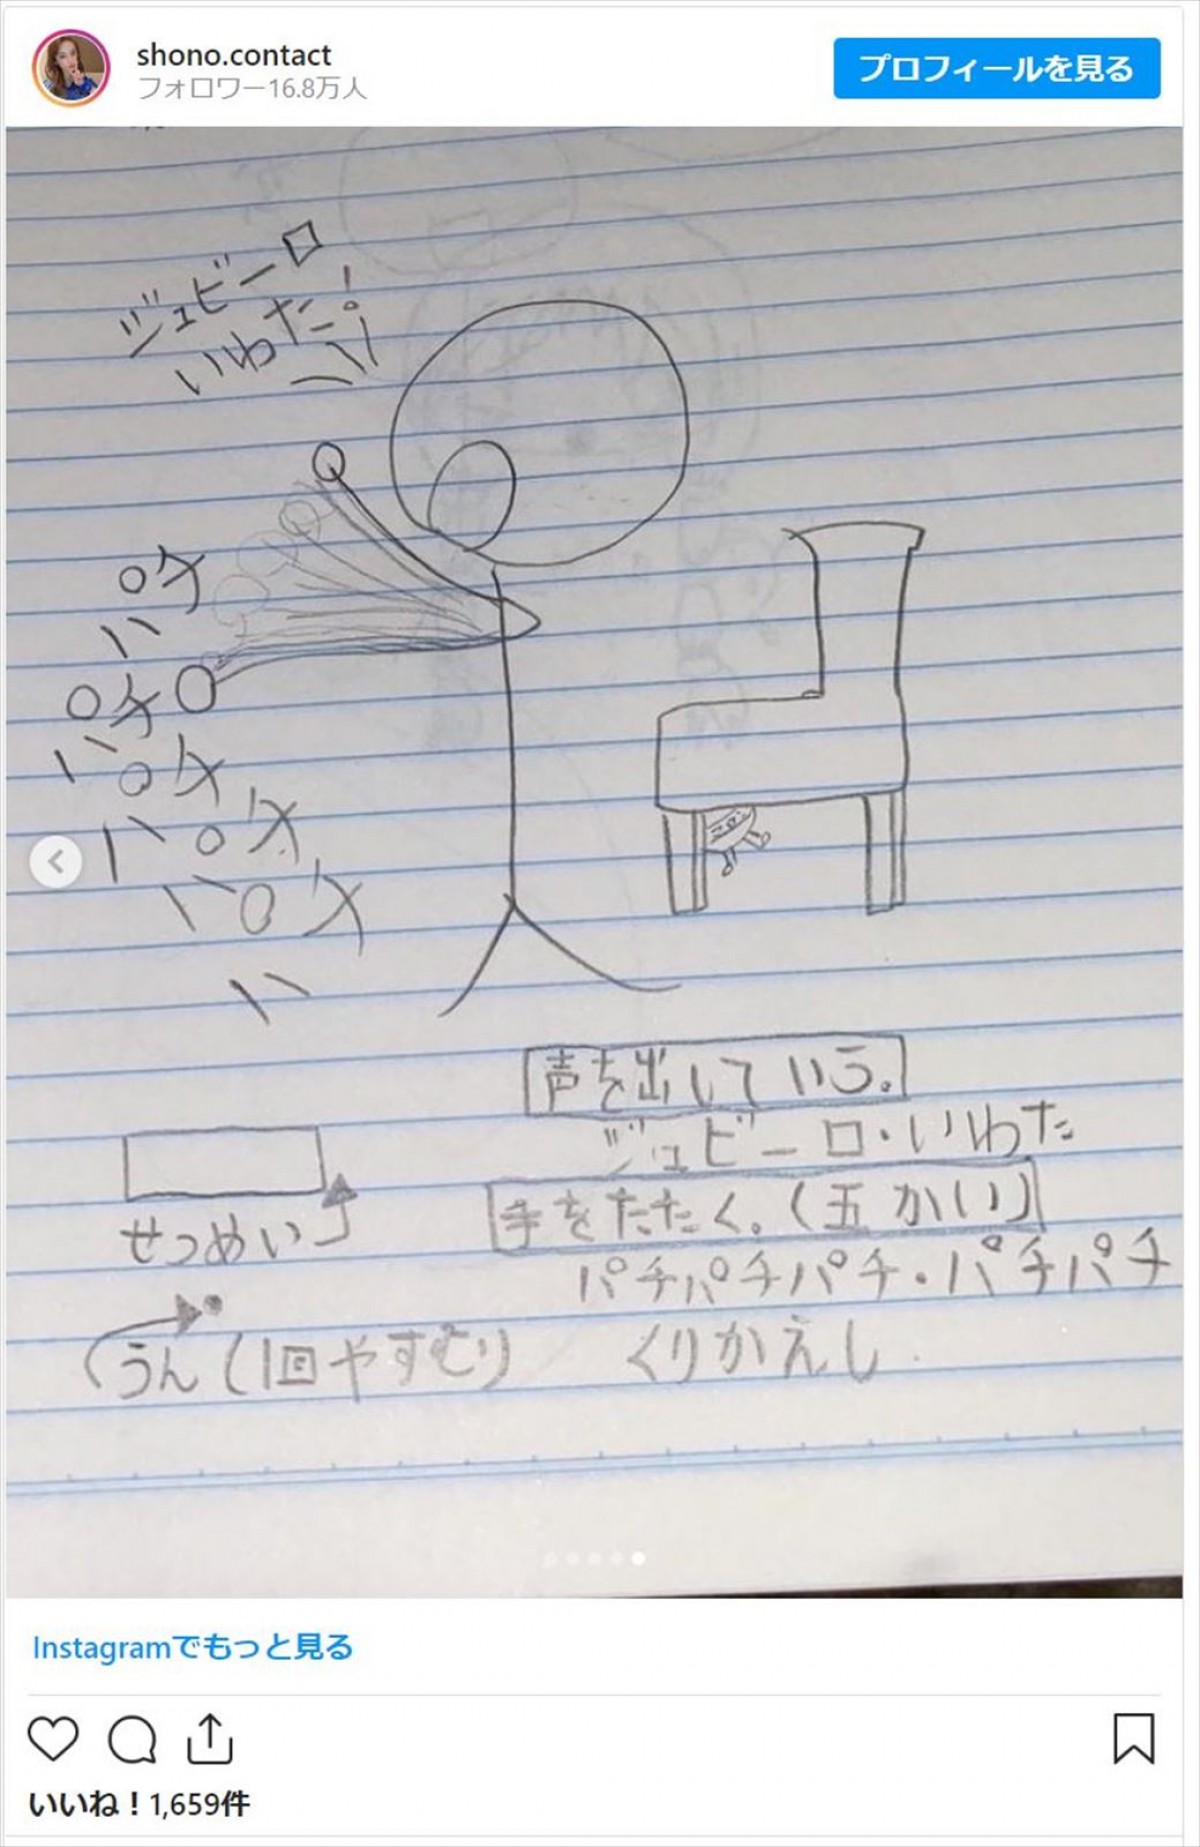 shono.contact
フォロワー16.8万人
プロフィールを見る
ジュビーロ
いわた!
パチ
パチ
パチ
パチ
パチ
声を出していう。
ジュビーロ・いわた
手をたたく。(五かい)
パチパチパチ・パチパチ
せつめい
うん(1回やすむ)
くりかえし
Instagramでもっと見る
いいね!1,659件